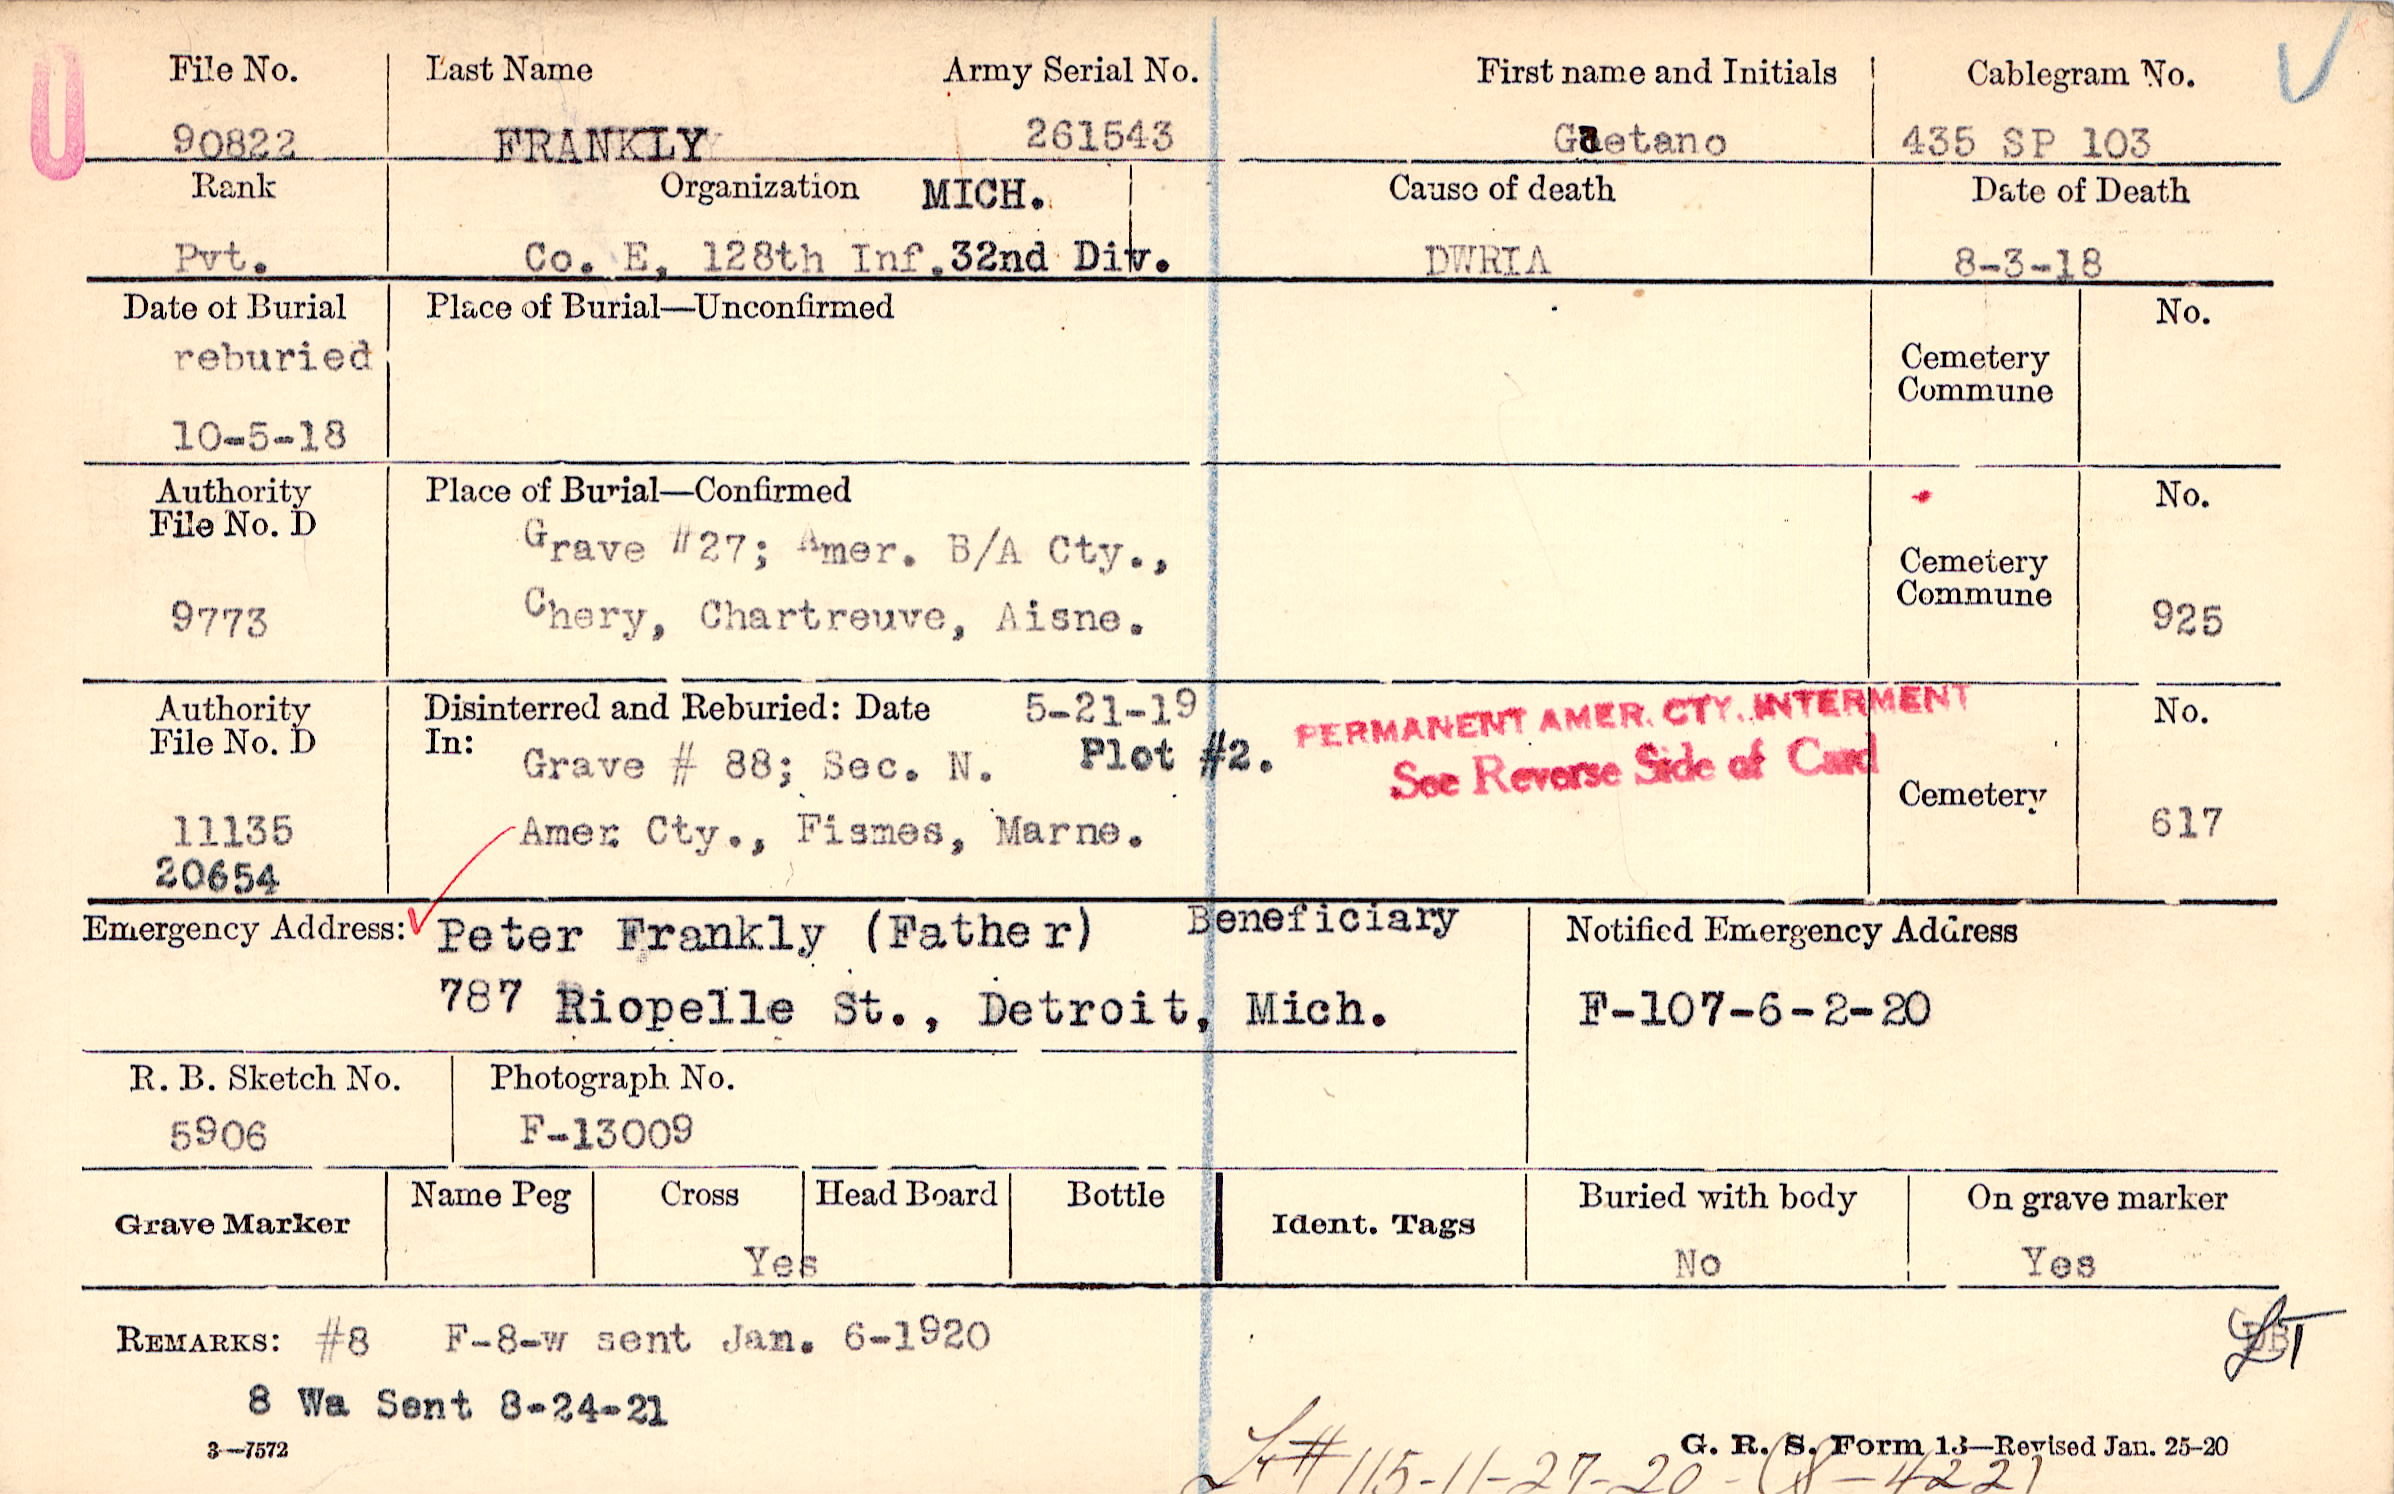 File No. Last Name Army Serial No. First name and Initials Cablegram No.
90822 FRANKLY 261543 Gaetano 435 SP 103
Rank Organization MICH. Cause of death Date of Death
Pvt. Co. E, 128th Inf. 32nd Div. DWRIA 8-3-18
Date of Burial Place of Burial—Unconfirmed No.
reburied
Cemetery
Commune
10-5-18
Authority Place of Burial—Confirmed No.
File No. D
Grave #27; Amer. B/A Cty.,
Cemetery
Commune
9773 Chery, Chartreuve, Aisne. 925
Authority Disinterred and Reburied: Date 5-21-19 PERMANENT AMER. CTY. INTERMENT No.
File No. D In: Grave # 88; Sec. N. Plot #2. See Reverse Side of Card
Cemetery
11135 Amer. Cty., Fismes, Marne. 617
20654
Emergency Address: Peter Frankly (Father) Beneficiary Notified Emergency Address
787 Riopelle St., Detroit, Mich. F-107-6-2-20
R. B. Sketch No. Photograph No.
5906 F-13009
Grave Marker Name Peg Cross Head Board Bottle Ident. Tags Buried with body On grave marker
Yes No Yes
REMARKS: #8 F-8-w sent Jan. 6-1920
8 Wa Sent 8-24-21
3—7572 G. R. S. Form 13—Revised Jan. 25-20
115-11-27-20-